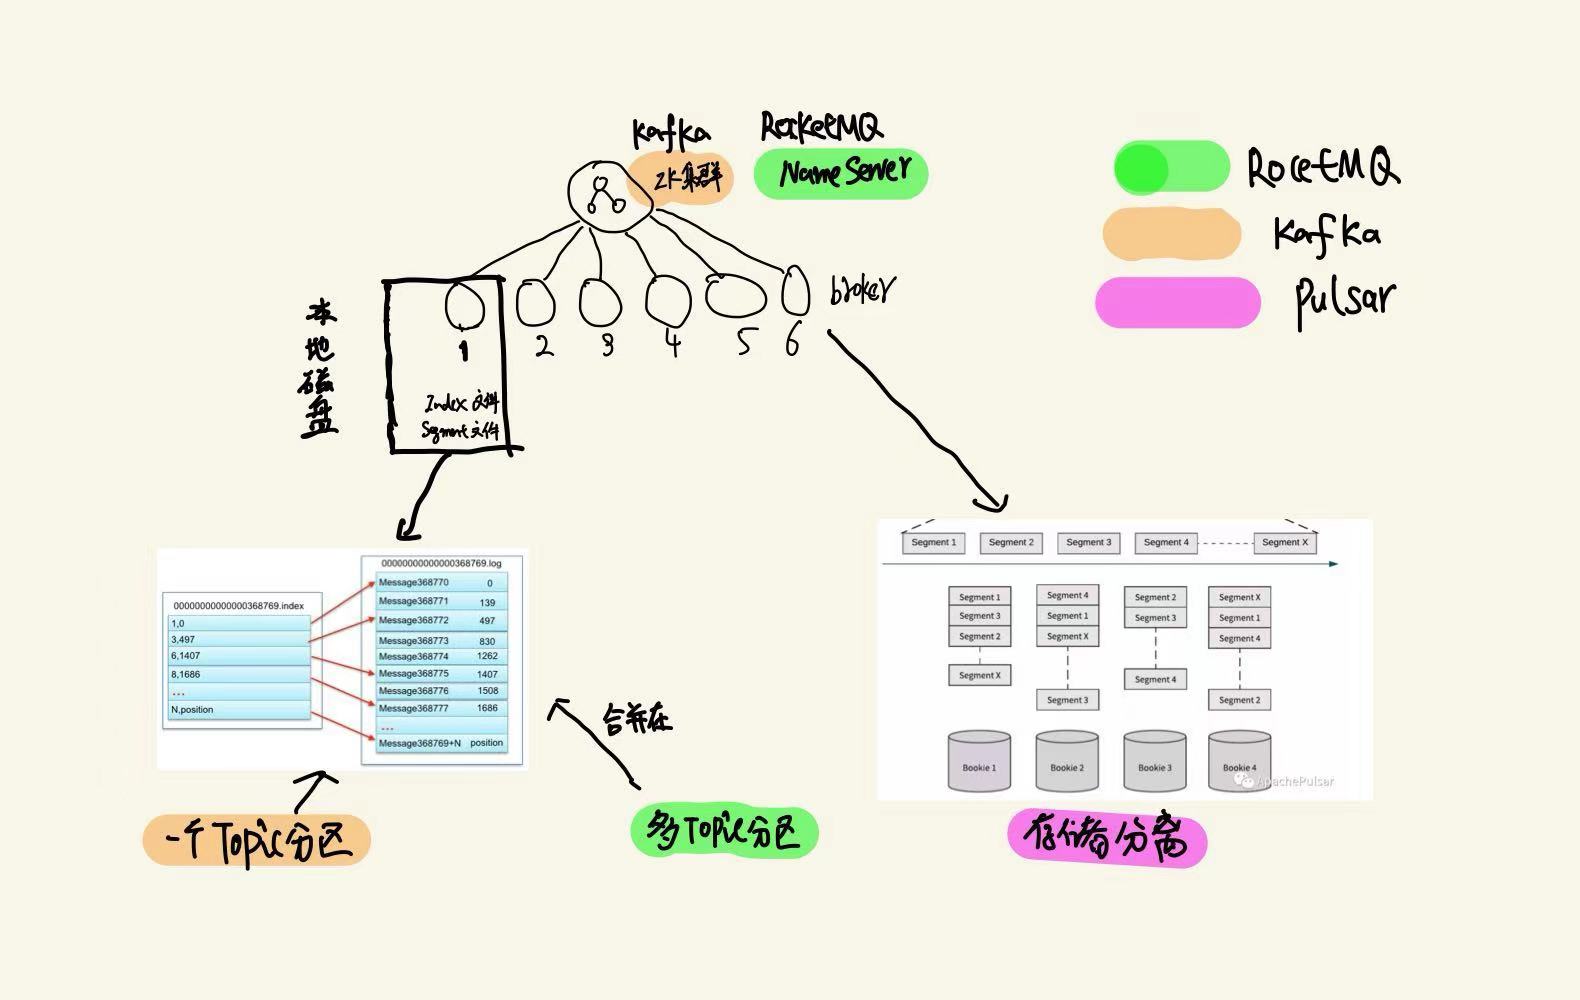 Kafka
RocketMQ
ZK集群
Name Server
RocetMQ
Kafka
Pulsar
broker
1
2
3
4
5
6
本地磁盘
Index文件
Segment文件
00000000000000368769.index
1,0
3,497
6,1407
8,1686
...
N,position
00000000000000368769.log
Message368770 0
Message368771 139
Message368772 497
Message368773 830
Message368774 1262
Message368775 1407
Message368776 1508
Message368777 1686
...
Message368769+N position
合并在
一个Topic分区
多Topic分区
Segment 1 Segment 2 Segment 3 Segment 4 Segment X
Segment 1
Segment 3
Segment 2
Segment X
Segment 4
Segment 1
Segment X
Segment 3
Segment 2
Segment 3
Segment 4
Segment X
Segment 1
Segment 4
Segment 2
Bookie 1
Bookie 2
Bookie 3
Bookie 4
ApachePulsar
存储分离